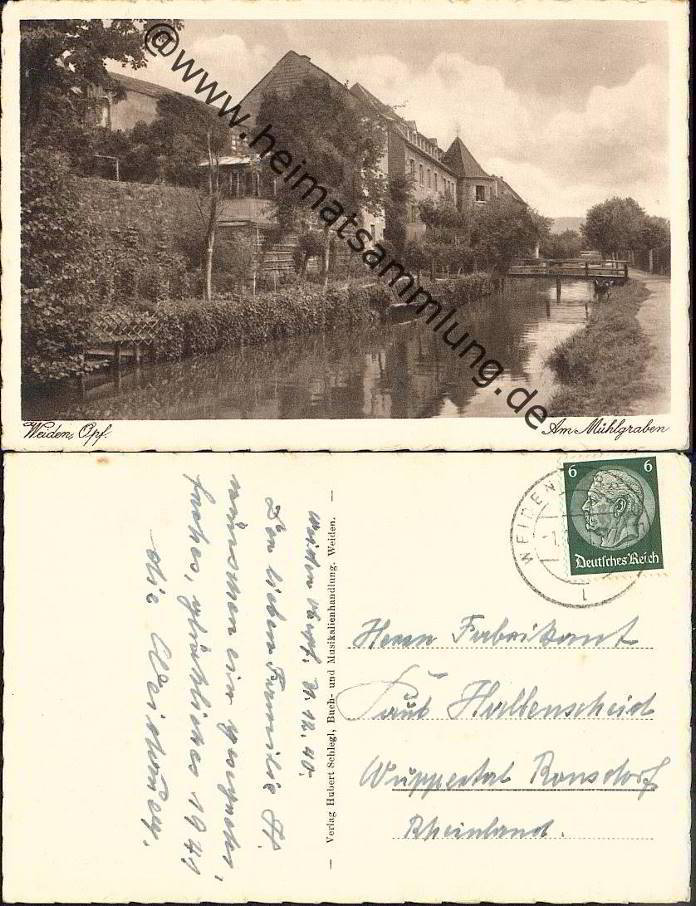 @www.heimatsammlung.de
Weiden, Opf.
Am Mühlgraben
WEIDEN
6 6
Deutsches Reich
Herrn Fabrikant
Paul Halbenscheid
Wuppertal Ronsdorf
Rheinland.
— Verlag Hubert Schlegl, Buch- und Musikalienhandlung, Weiden. —
Weiden Obpf. 31.12.40.
Der lieben Familie H.
wünschen ein gesegnetes,
frohes, glückliches 1941
die